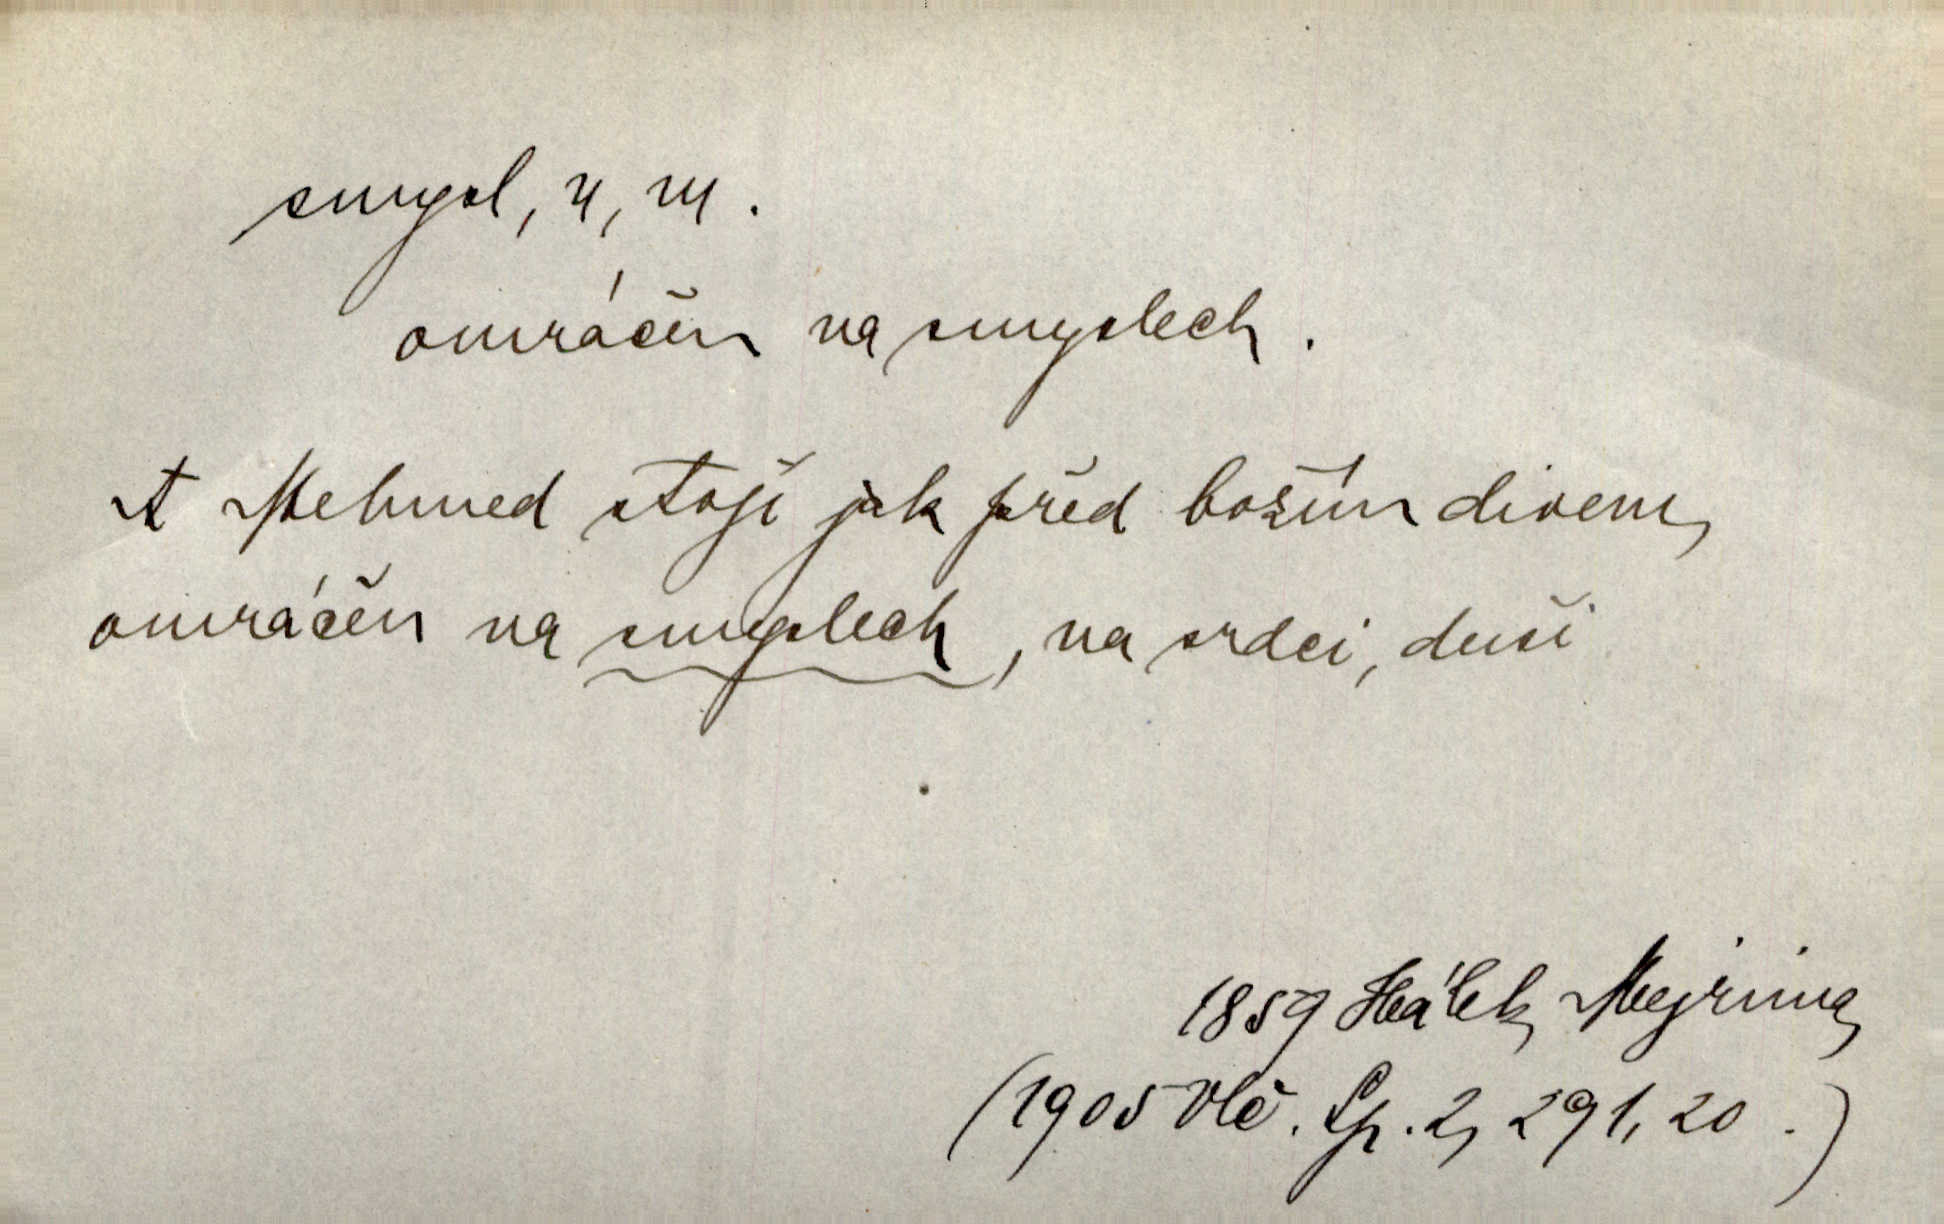 smysl, u, m.
omráčen na smyslech.
A Mehmed stojí jak před božím divem,
omráčen na smyslech, na srdci, duši
1859 Hálek, Mejrima,
(1905 Vlč. Sp. 2, 291, 20.)